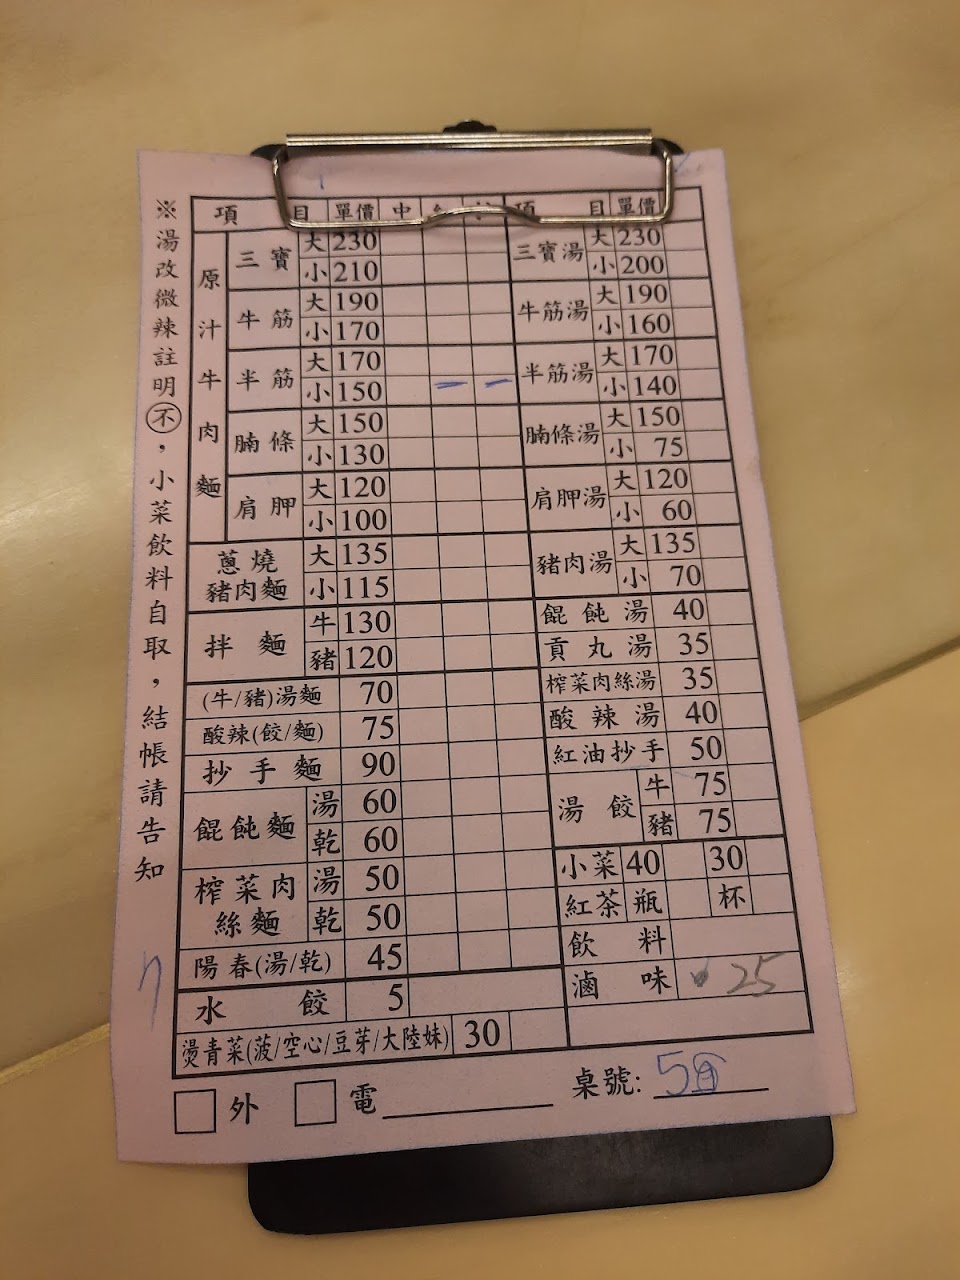 ※湯改微辣註明不，小菜飲料自取，結帳請告知
項 目 單價 中
原汁牛肉麵
三寶 大 230
小 210
牛筋 大 190
小 170
半筋 大 170
小 150 一 一
腩條 大 150
小 130
肩胛 大 120
小 100
蔥燒豬肉麵 大 135
小 115
拌麵 牛 130
豬 120
(牛/豬)湯麵 70
酸辣(餃/麵) 75
抄手麵 90
餛飩麵 湯 60
乾 60
榨菜肉絲麵 湯 50
乾 50
陽春(湯/乾) 45
水餃 5
燙青菜(菠/空心/豆芽/大陸妹) 30
項 目 單價
三寶湯 大 230
小 200
牛筋湯 大 190
小 160
半筋湯 大 170
小 140
腩條湯 大 150
小 75
肩胛湯 大 120
小 60
豬肉湯 大 135
小 70
餛飩湯 40
貢丸湯 35
榨菜肉絲湯 35
酸辣湯 40
紅油抄手 50
湯餃 牛 75
豬 75
小菜 40 30
紅茶 瓶 杯
飲料
滷味 25
外 電 桌號: 5